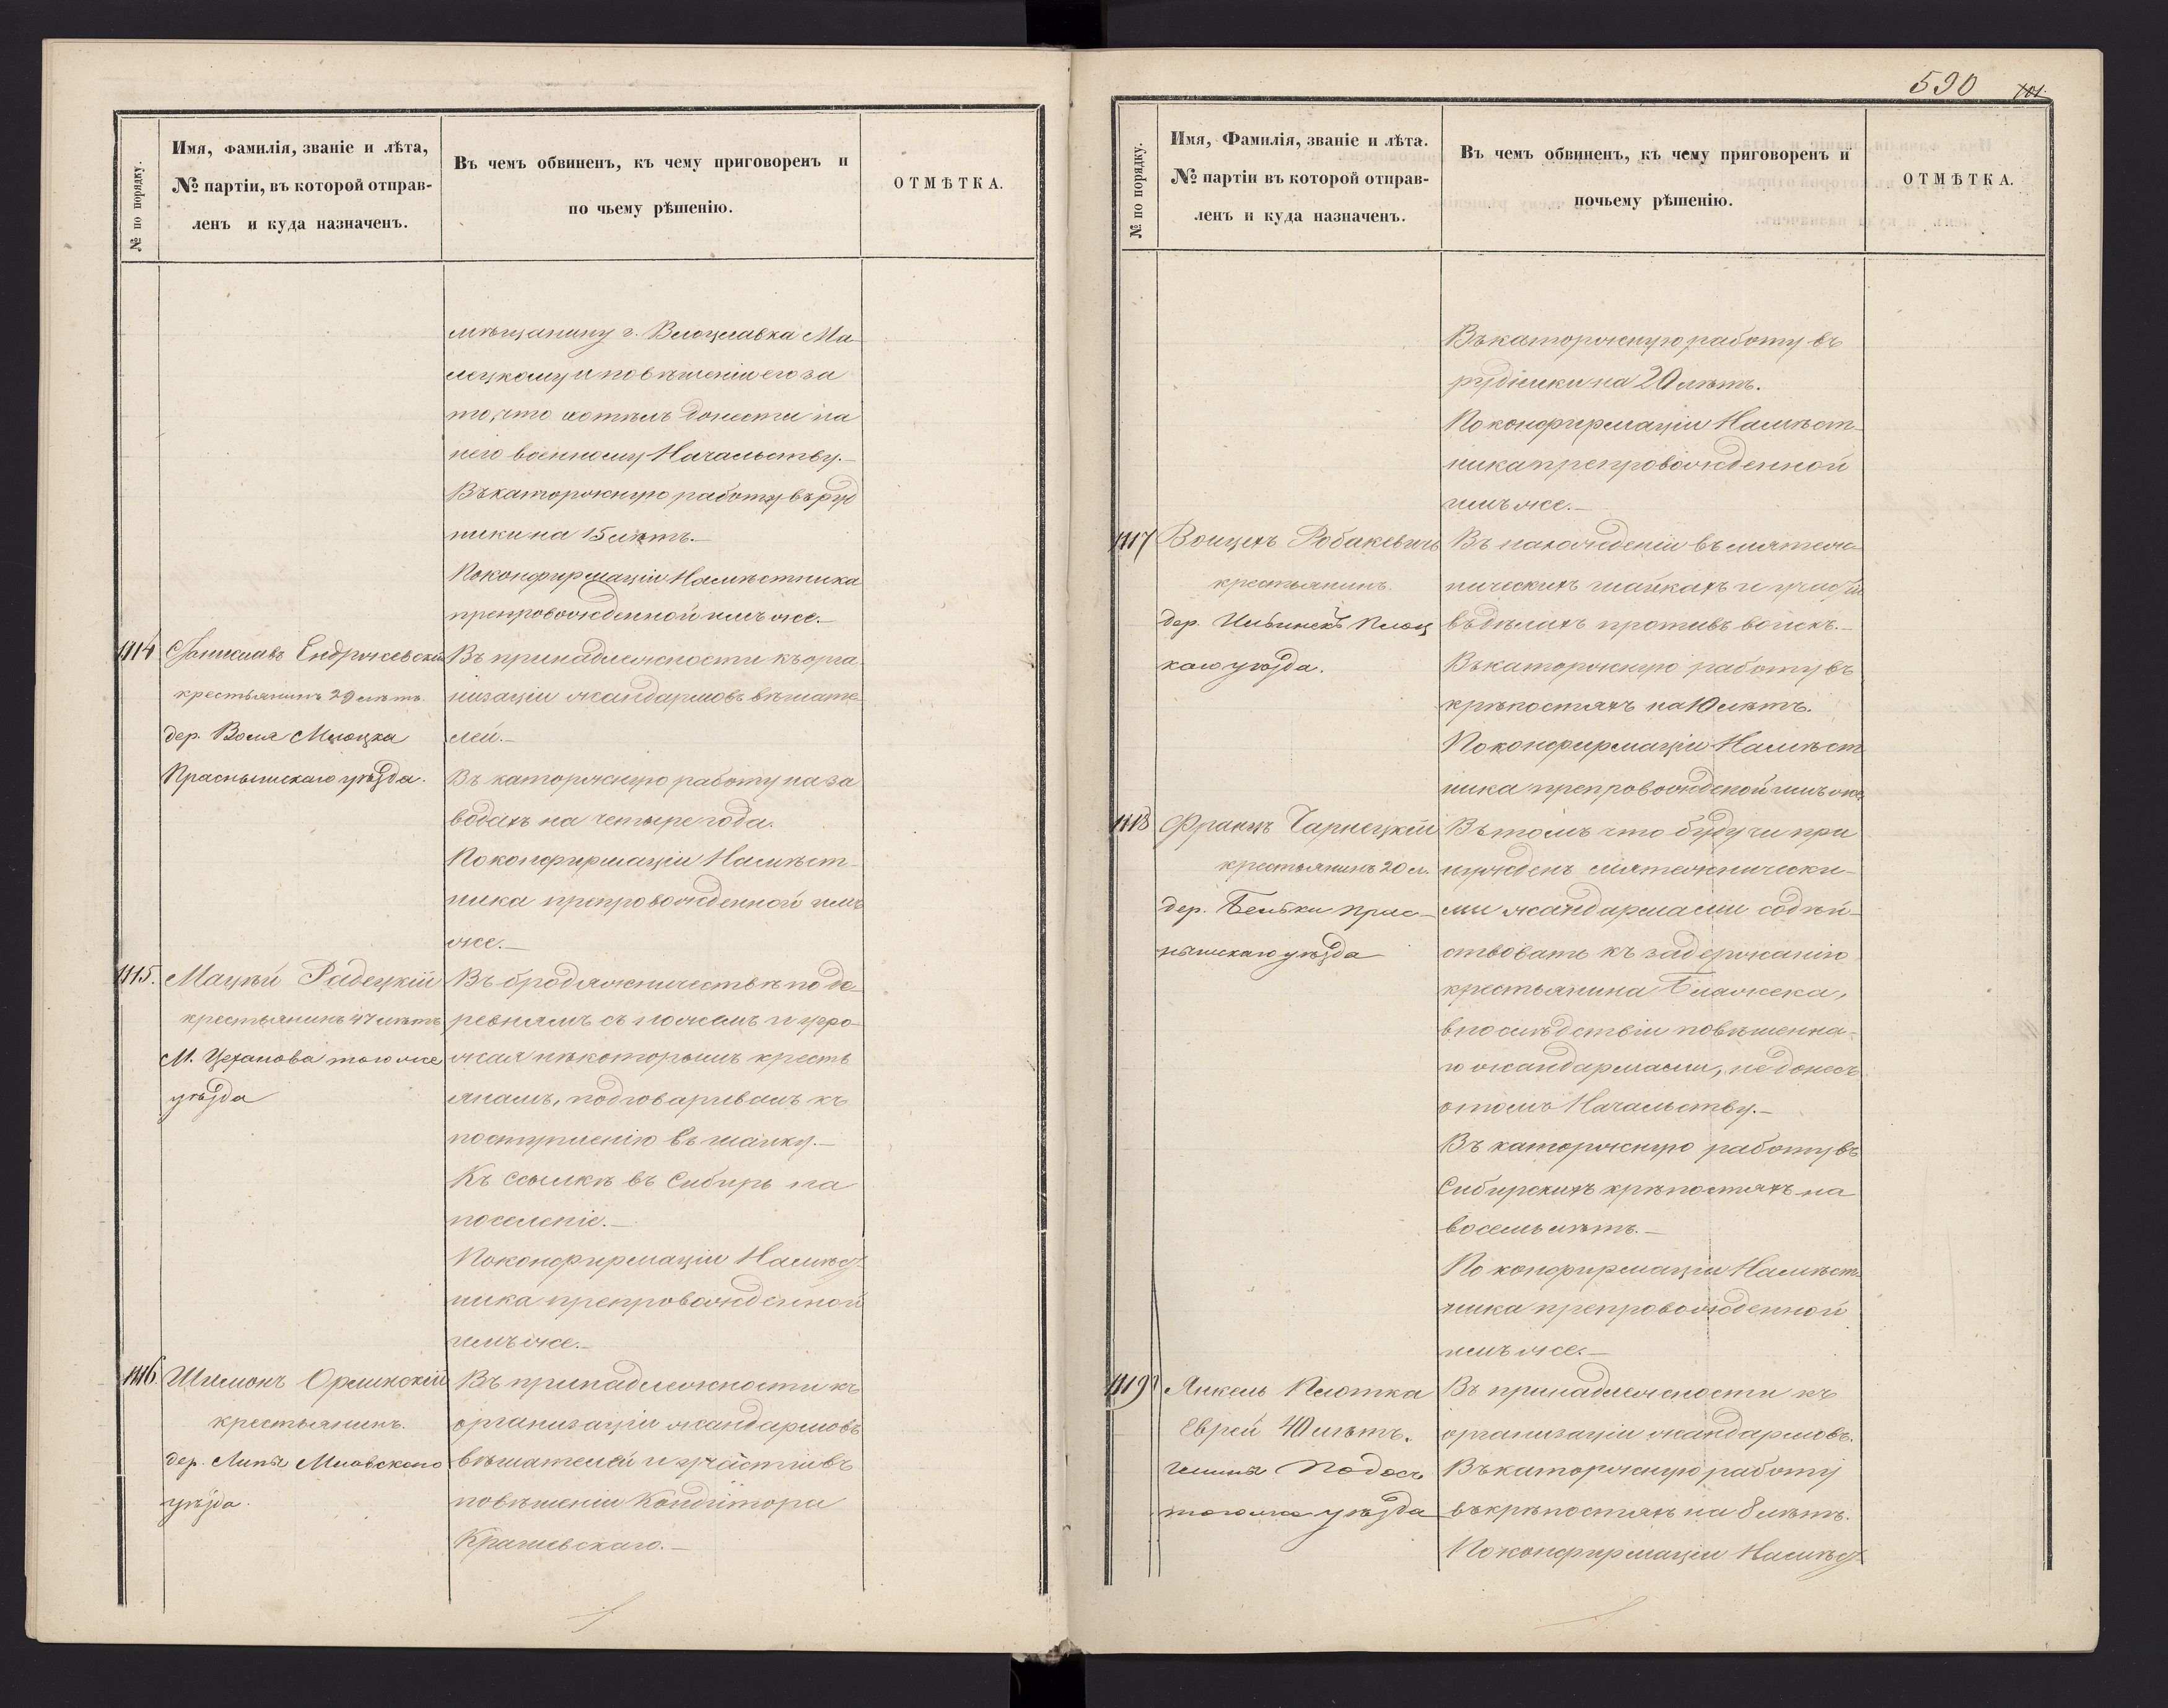 № по порядку.
Имя, фамилія, званіе и лѣта,
№ партіи, въ которой отправ-
ленъ и куда назначенъ.
Въ чемъ обвиненъ, къ чему приговоренъ и
по чьему рѣшенію.
ОТМѢТКА.
мѣщанину г. Влоцлавка Ма-
лецкому и повѣшеніи его за
то, что хотѣлъ донести на
него военному Начальству.—
Въ каторжную работу въ руд
ники на 15 лѣтъ.—
По конфирмаціи Намѣстника
препровожденной имъ же.—
1114 Станиславъ Ендржевскій
крестьянинъ 29 лѣтъ.
дер. Воля Млоцка
Праснышскаго уѣзда.
Въ принадлежности къ орга-
низаціи жандармовъ вѣшате-
лей.—
Въ каторжную работу на за
водахъ на четыре года.
По конфирмаціи Намѣст-
ника препровожденной имъ
же.—
1115. Мацѣй Радецкій
крестьянинъ 47 лѣтъ
М. Цеханова того же
уѣзда
Въ бродяжничествѣ по де-
ревнямъ съ ножемъ и угро-
жая нѣкоторымъ кресть
янамъ, подговаривалъ къ
поступленію въ шайку.—
Къ ссылкѣ въ Сибирь на
поселеніе.—
По конфирмаціи Намѣст-
ника препровожденной
имъ же.—
1116. Шимонъ Орлинскій
крестьянинъ.
дер. Липы Млавскаго
уѣзда.
Въ принадлежности къ
организаціи жандармовъ
вѣшателей и участіи въ
повѣшеніи Кондитора
Крашевскаго.—
590 101
№ по порядку.
Имя, Фамилія, званіе и лѣта.
№ партіи въ которой отправ-
ленъ и куда назначенъ.
Въ чемъ обвиненъ, къ чему приговоренъ и
почьему рѣшенію.
ОТМѢТКА.
Въ каторжную работу въ
рудники на 20 лѣтъ.
По конфирмаціи Намѣст-
ника препровожденной
имъ же.—
1117 Войцехъ Робакевичъ
крестьянинъ.
дер. Плоц
каго уѣзда.
Въ нахожденіи въ мятеж-
ническихъ шайкахъ и участіи
въ дѣлахъ противъ войскъ.—
Въ каторжную работу въ
крѣпостяхъ на 10 лѣтъ.
По конфирмаціи Намѣст
ника препровожденой имъ же.
1118 Францъ Чарнецкій
крестьянинъ 20 л.
дер. Прас-
нышскаго уѣзда
Въ томъ что будучи при
нужденъ мятежнически-
ми жандармами содѣй-
ствовать къ задержанію
крестьянина Блажека,
впослѣдствіи повѣшенна-
го жандармами, не донесъ
о томъ Начальству.—
Въ каторжную работу въ
Сибирскихъ крѣпостяхъ на
восемь лѣтъ.—
По конфирмаціи Намѣст-
ника препровожденной
имъ же.—
1119 Янкель Плотка
Еврей 40 лѣтъ.
гмины Подось
того же уѣзда
Въ принадлежности къ
организаціи жандармовъ.
Въ каторжную работу
въ крѣпостяхъ на 8 лѣтъ.
По конфирмаціи Намѣст-